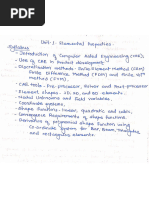 Unit-1 Elemental Properties:
Syllabus
- Introduction of Computer Aided Engineering (CAE),
- Use of CAE in Product development
- Discretization methods - Finite Element Method (FEM)
Finite Difference Method (FDM) and Finite Vol
method (FVM)
- CAE tools - Pre-processor, Solver and Post-processor
- Element shapes - 1D, 2D, and 3D elements.
- Nodal Unknowns and field variables,
- Coordinate systems,
- Shape functions - linear, quadratic and cubic,
- Convergence Requirements of shape functions,
- Derivations of polynomial shape function using
Co-ordinate System for Bar, Beam, Triangular
and rectangular elements.